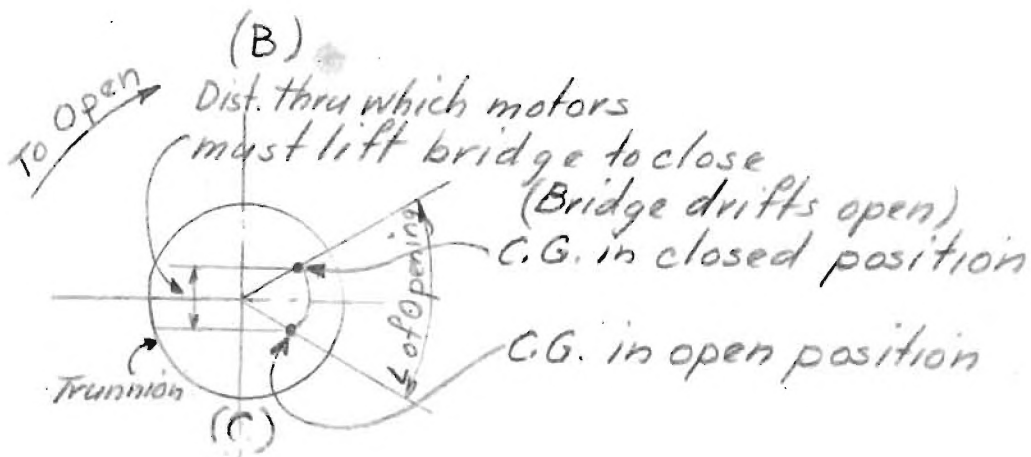 (B)
To Open
Dist. thru which motors
must lift bridge to close
(Bridge drifts open)
C.G. in closed position
∠ of Opening
C.G. in open position
Trunnion
(C)